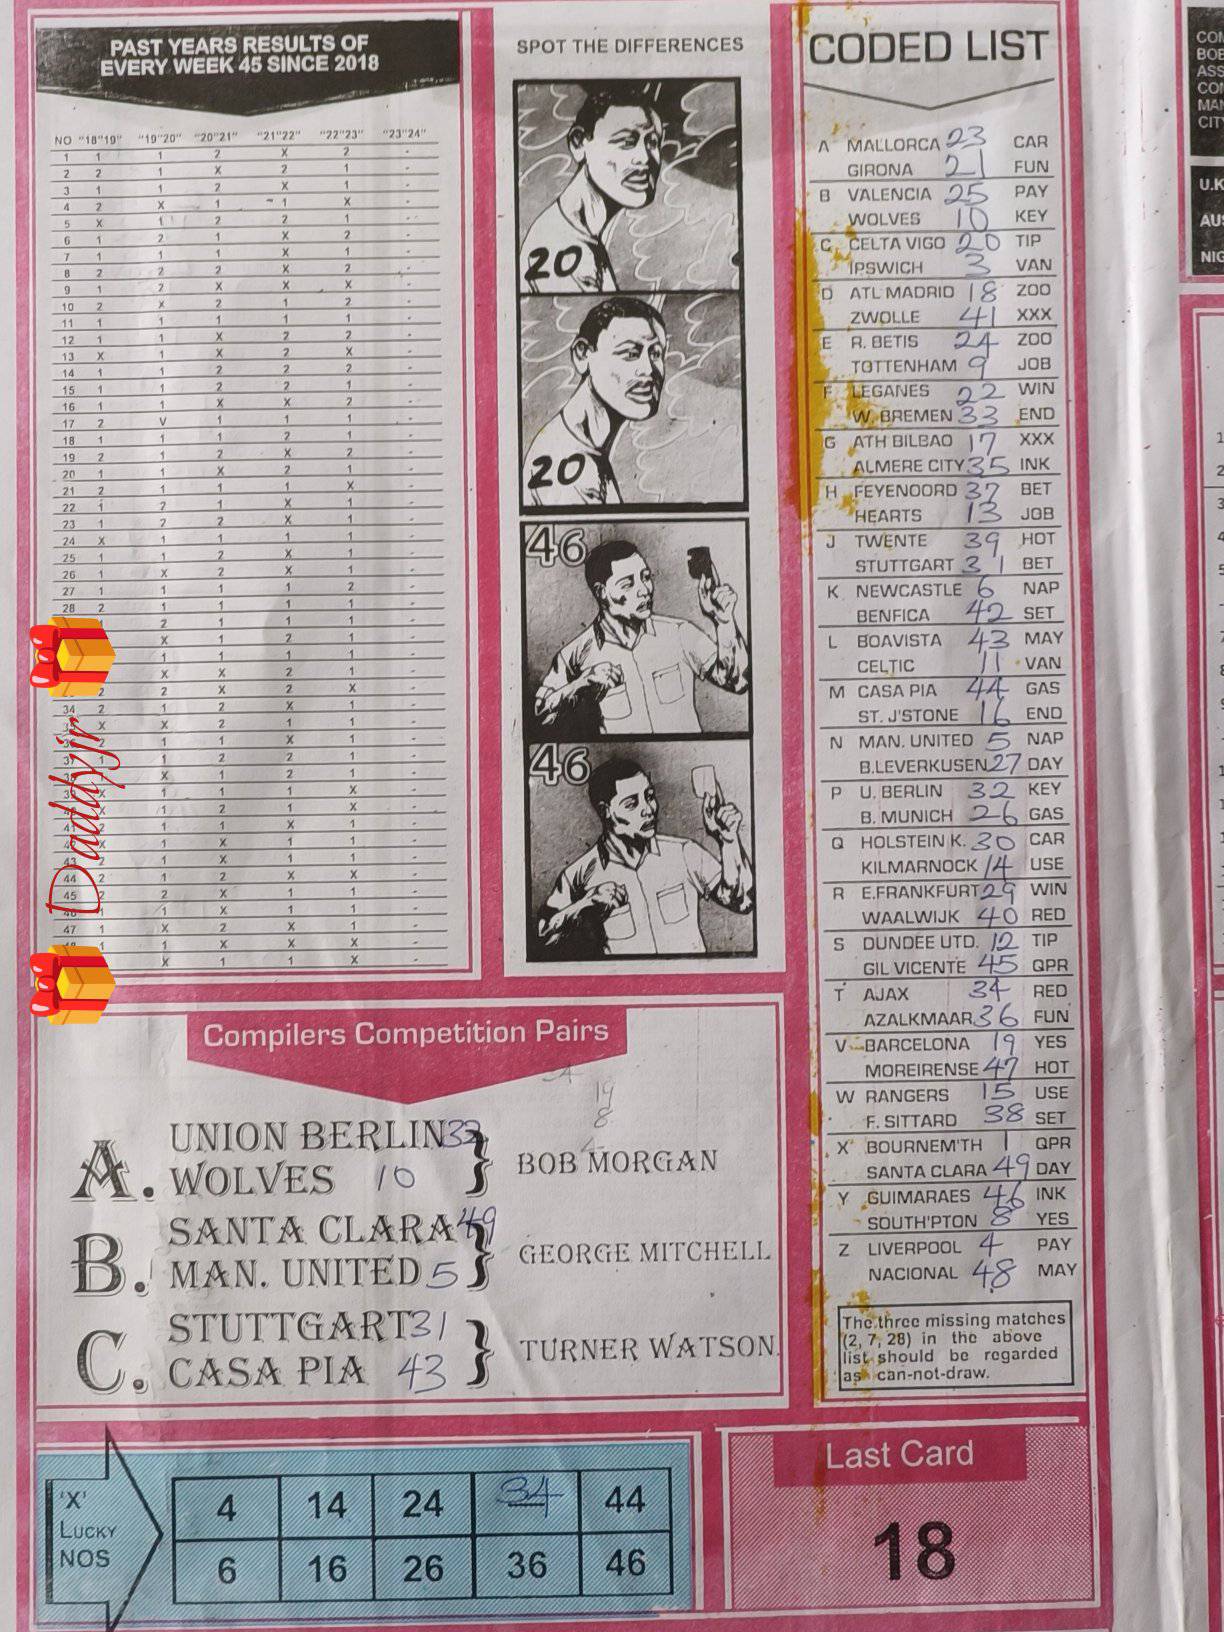 PAST YEARS RESULTS OF
EVERY WEEK 45 SINCE 2018
NO "18"19" "19"20" "20"21" "21"22" "22"23" "23"24"
1 1 1 2 X 2 -
2 2 1 X 2 1 -
3 1 1 2 X 1 -
4 2 X 1 1 X -
5 X 1 2 2 1 -
6 1 2 1 X 2 -
7 1 1 1 X 1 -
8 2 2 2 X 2 -
9 1 2 X X X -
10 2 X 2 1 2 -
11 1 1 1 1 1 -
12 1 1 X 2 2 -
13 X 1 X 2 X -
14 1 1 2 2 2 -
15 1 1 2 2 1 -
16 1 1 X X 2 -
17 2 V 1 1 1 -
18 1 1 1 2 1 -
19 2 1 2 X 2 -
20 1 1 X 2 1 -
21 2 1 1 1 X -
22 1 2 1 X 1 -
23 1 2 2 X 1 -
24 X 1 1 1 1 -
25 1 1 2 X 1 -
26 1 X 2 X 1 -
27 1 1 1 1 2 -
28 2 1 1 1 1 -
1 2 1 1 1 -
X 1 2 1 -
1 1 1 1 -
X X 2 1 -
2 2 X 2 X -
34 2 1 2 X 1 -
X X 2 1 1 -
2 1 1 X 1 -
37 1 1 2 2 1 -
X 1 2 1 -
X 1 1 1 X -
X 1 2 1 X -
41 2 1 1 X 1 -
X 1 X 1 1 -
43 2 1 X 1 1 -
44 2 1 2 X X -
45 2 2 X 1 1 -
46 1 1 X 1 1 -
47 1 X 2 X 1 -
48 1 1 X X X -
X 1 1 X -
Daddyjr
SPOT THE DIFFERENCES
20
20
46
46
CODED LIST
A MALLORCA 23 CAR
GIRONA 21 FUN
B VALENCIA 25 PAY
WOLVES 10 KEY
C CELTA VIGO 20 TIP
IPSWICH 3 VAN
D ATL MADRID 18 ZOO
ZWOLLE 41 XXX
E R. BETIS 24 ZOO
TOTTENHAM 9 JOB
F LEGANES 22 WIN
W. BREMEN 33 END
G ATH BILBAO 17 XXX
ALMERE CITY 35 INK
H FEYENOORD 37 BET
HEARTS 13 JOB
J TWENTE 39 HOT
STUTTGART 31 BET
K NEWCASTLE 6 NAP
BENFICA 42 SET
L BOAVISTA 43 MAY
CELTIC 11 VAN
M CASA PIA 44 GAS
ST. J'STONE 16 END
N MAN. UNITED 5 NAP
B.LEVERKUSEN 27 DAY
P U. BERLIN 32 KEY
B. MUNICH 26 GAS
Q HOLSTEIN K. 30 CAR
KILMARNOCK 14 USE
R E.FRANKFURT 29 WIN
WAALWIJK 40 RED
S DUNDEE UTD. 12 TIP
GIL VICENTE 45 QPR
T AJAX 34 RED
AZALKMAAR 36 FUN
V BARCELONA 19 YES
MOREIRENSE 47 HOT
W RANGERS 15 USE
F. SITTARD 38 SET
X BOURNEM'TH 1 QPR
SANTA CLARA 49 DAY
Y GUIMARAES 46 INK
SOUTH'PTON 8 YES
Z LIVERPOOL 4 PAY
NACIONAL 48 MAY
The three missing matches
(2, 7, 28) in the above
list should be regarded
as can-not-draw.
Compilers Competition Pairs
19
8
A. UNION BERLIN 32
WOLVES 10
BOB MORGAN
B. SANTA CLARA 49
MAN. UNITED 5
GEORGE MITCHELL
C. STUTTGART 31
CASA PIA 43
TURNER WATSON.
'X'
LUCKY
NOS
4 14 24 34 44
6 16 26 36 46
Last Card
18
U.K
AUS
NIG